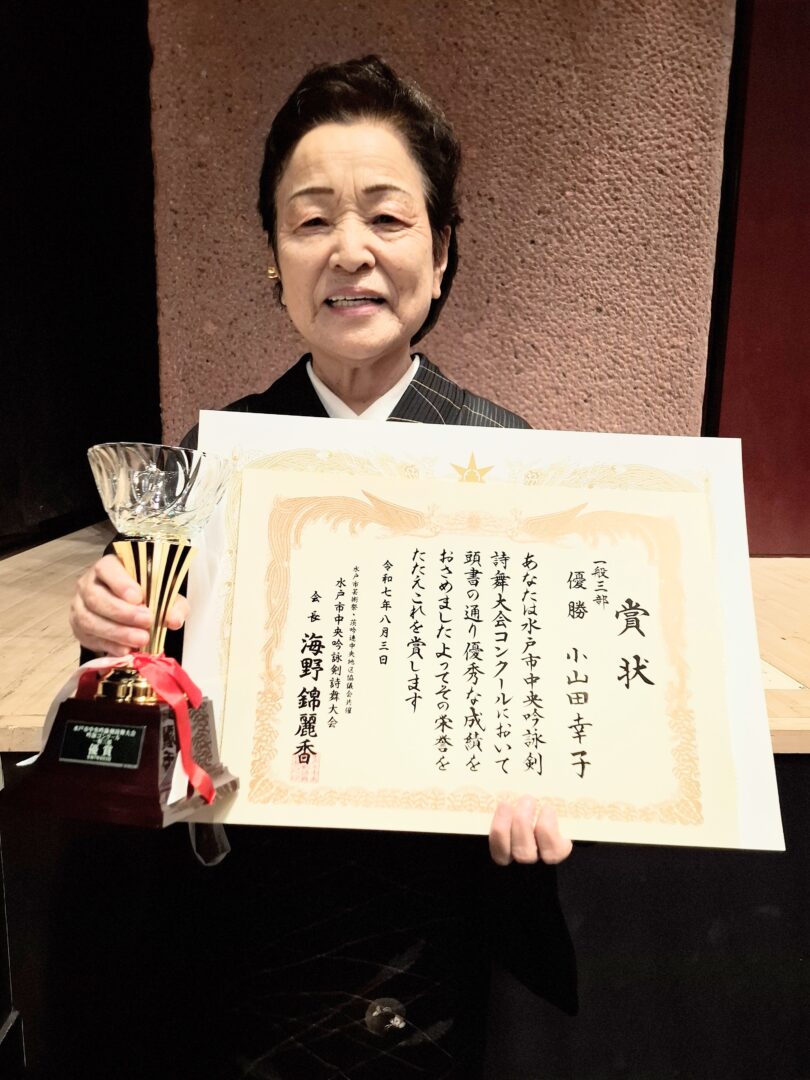 賞状
一般三部
優勝 小山田幸子
あなたは水戸市中央吟詠剣
詩舞大会コンクールにおいて
頭書の通り優秀な成績を
おさめましたよってその栄誉を
たたえこれを賞します
令和七年八月三日
水戸市芸術祭・茨吟連中央地区協議会共催
水戸市中央吟詠剣詩舞大会
会長 海野錦麗香
水戸市中央吟詠剣詩舞大会
優賞